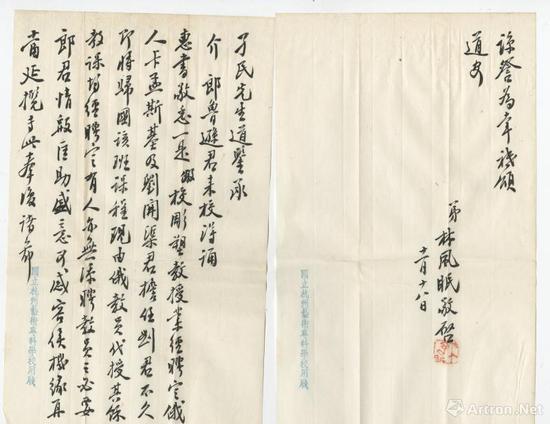 孑民先生道鑒承
介 郎魯遜君来校得誦
惠書敬悉一是敝校彫塑教授業經聘定俄
人卡孟斯基及劉開渠君擔任劉君不久
即將歸國該班課程現由俄教員代授其餘
教課均經聘定有人亦無添聘教員之必要
郎君情殷匡助盛意可感容俟機緣再
當延攬专此奉復諸希
國立杭州藝術專科學校用牋
諒詧為幸祗頌
道安
弟林風眠敬啓
十一月十八日
國立杭州藝術專科學校用牋
雅昌藝術網
Artron.Net